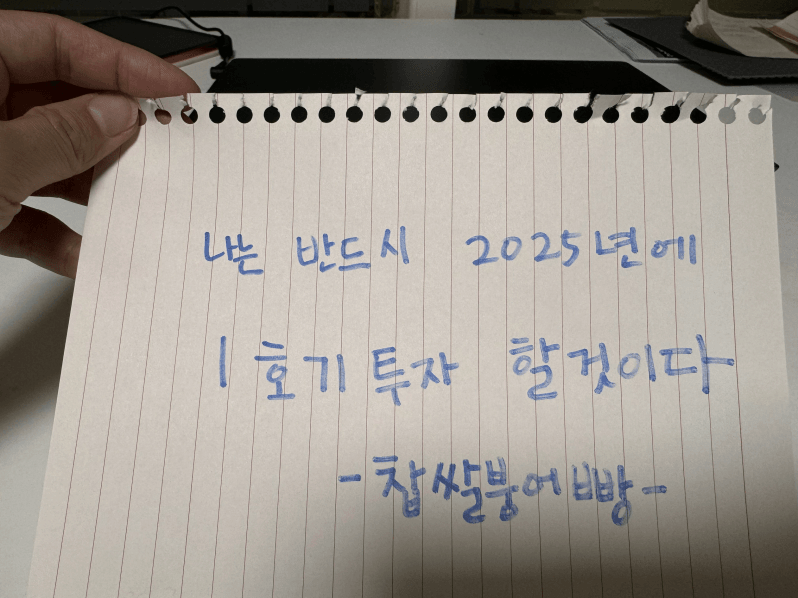 나는 반드시 2025년에
1호기 투자 할것이다
-찹쌀붕어빵-